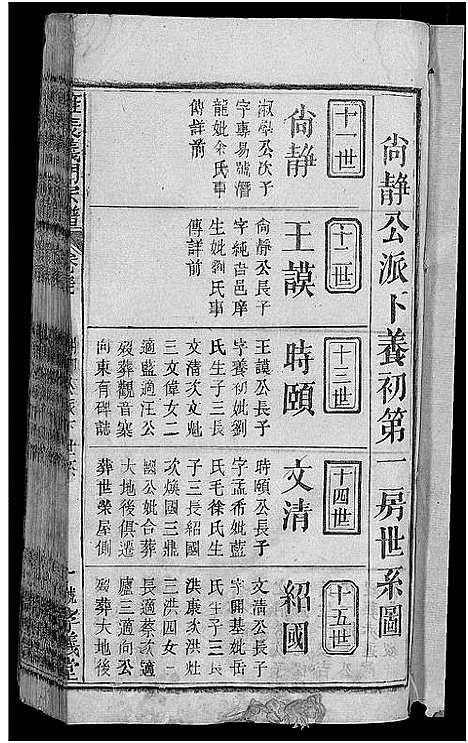 尙靜公派下養初第一房世系圖
十一世
尙靜
淑學公次子
字專易號潛
龍妣余氏事
傳詳前
十二世
王謨
尙靜公長子
字純吉邑庠
生妣劉氏事
傳詳前
十三世
時頤
王謨公長子
字養初妣劉
氏生子三長
文清次文魁
三文偉女二
適藍適汪公
歿葬觀音寨
向東有碑誌
十四世
文清
時頤公長子
字孟希妣藍
氏毛徐氏生
子三長紹國
次煥國三鼎
國公妣合葬
大地後俱遷
葬世榮屋側
十五世
紹國
文清公長子
字開基妣岳
氏生子三長
洪庚次洪灶
三洪四女一
長適蔡次適
廬三適向公
歿葬大地後
義門宗譜
孝義堂